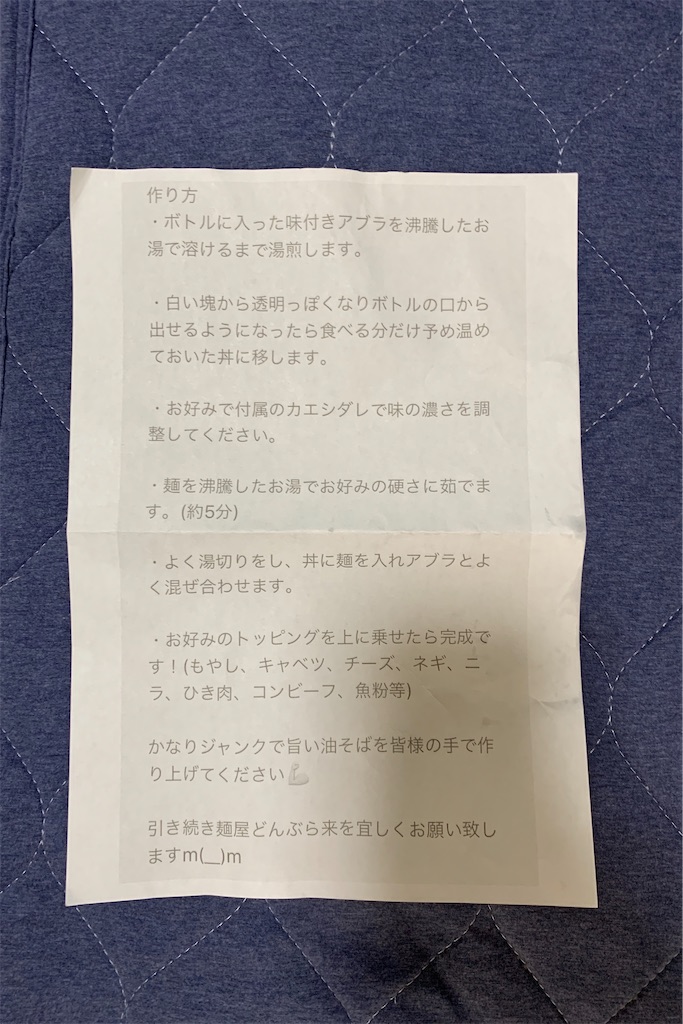 作り方
・ボトルに入った味付きアブラを沸騰したお
湯で溶けるまで湯煎します。
・白い塊から透明っぽくなりボトルの口から
出せるようになったら食べる分だけ予め温め
ておいた丼に移します。
・お好みで付属のカエシダレで味の濃さを調
整してください。
・麺を沸騰したお湯でお好みの硬さに茹でま
す。(約5分)
・よく湯切りをし、丼に麺を入れアブラとよ
く混ぜ合わせます。
・お好みのトッピングを上に乗せたら完成で
す！(もやし、キャベツ、チーズ、ネギ、ニ
ラ、ひき肉、コンビーフ、魚粉等)
かなりジャンクで旨い油そばを皆様の手で作
り上げてください💪
引き続き麺屋どんぶら来を宜しくお願い致し
ますm(__)m